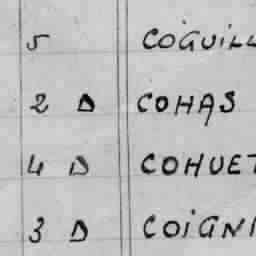 5 COGUILL
2 D COHAS
4 D COHUET
3 D COIGNI